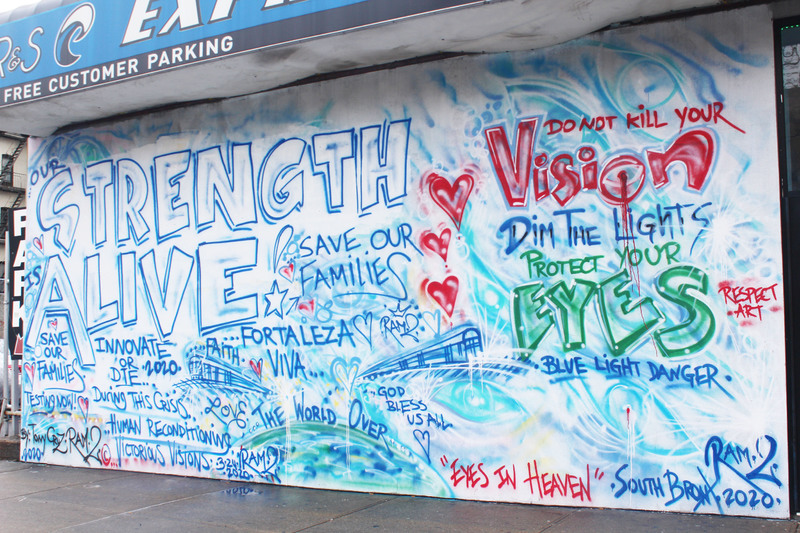 R&S EXP
FREE CUSTOMER PARKING
PARK
OUR
STRENGTH
IS
ALIVE.
SAVE OUR
FAMILIES
SAVE
OUR
FAMILIES
INNOVATE
OR
DIE... 2020
TESTING NOW!
DURING THIS CRISIS.
HUMAN RECONDITIONING
VICTORIOUS VISIONS.
By: Tony
RAM.2
2020
©
...FAITH
...FORTALEZA
VIVA...
RAM.2
LOVE
THE WORLD OVER
GOD
BLESS
US ALL
RAM.2
2020.
DO NOT KILL YOUR
VISION
DIM THE LIGHTS
PROTECT YOUR
EYES
RESPECT
ART
BLUE LIGHT DANGER.
"EYES IN HEAVEN"
SOUTH BRONX
RAM.2
2020.